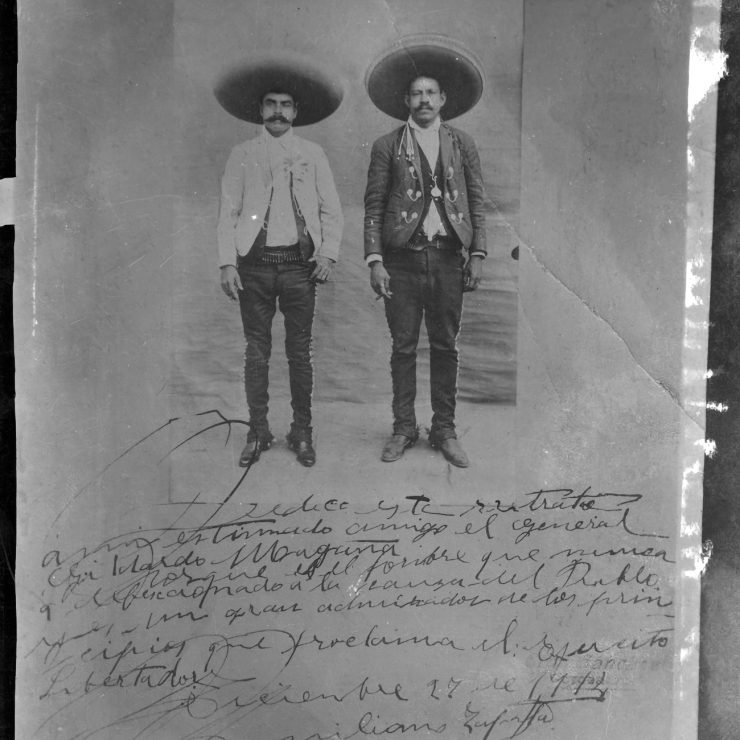 dedico este retrato
á mi estimado amigo el General
Gildardo Magaña
porque es el hombre que nunca
á defecsionado a la causa del Pueblo
y es un gran admirador de los prin-
cipios que proclama el Ejercito
Libertador
Diciembre 27 de 1914
Emiliano Zapata